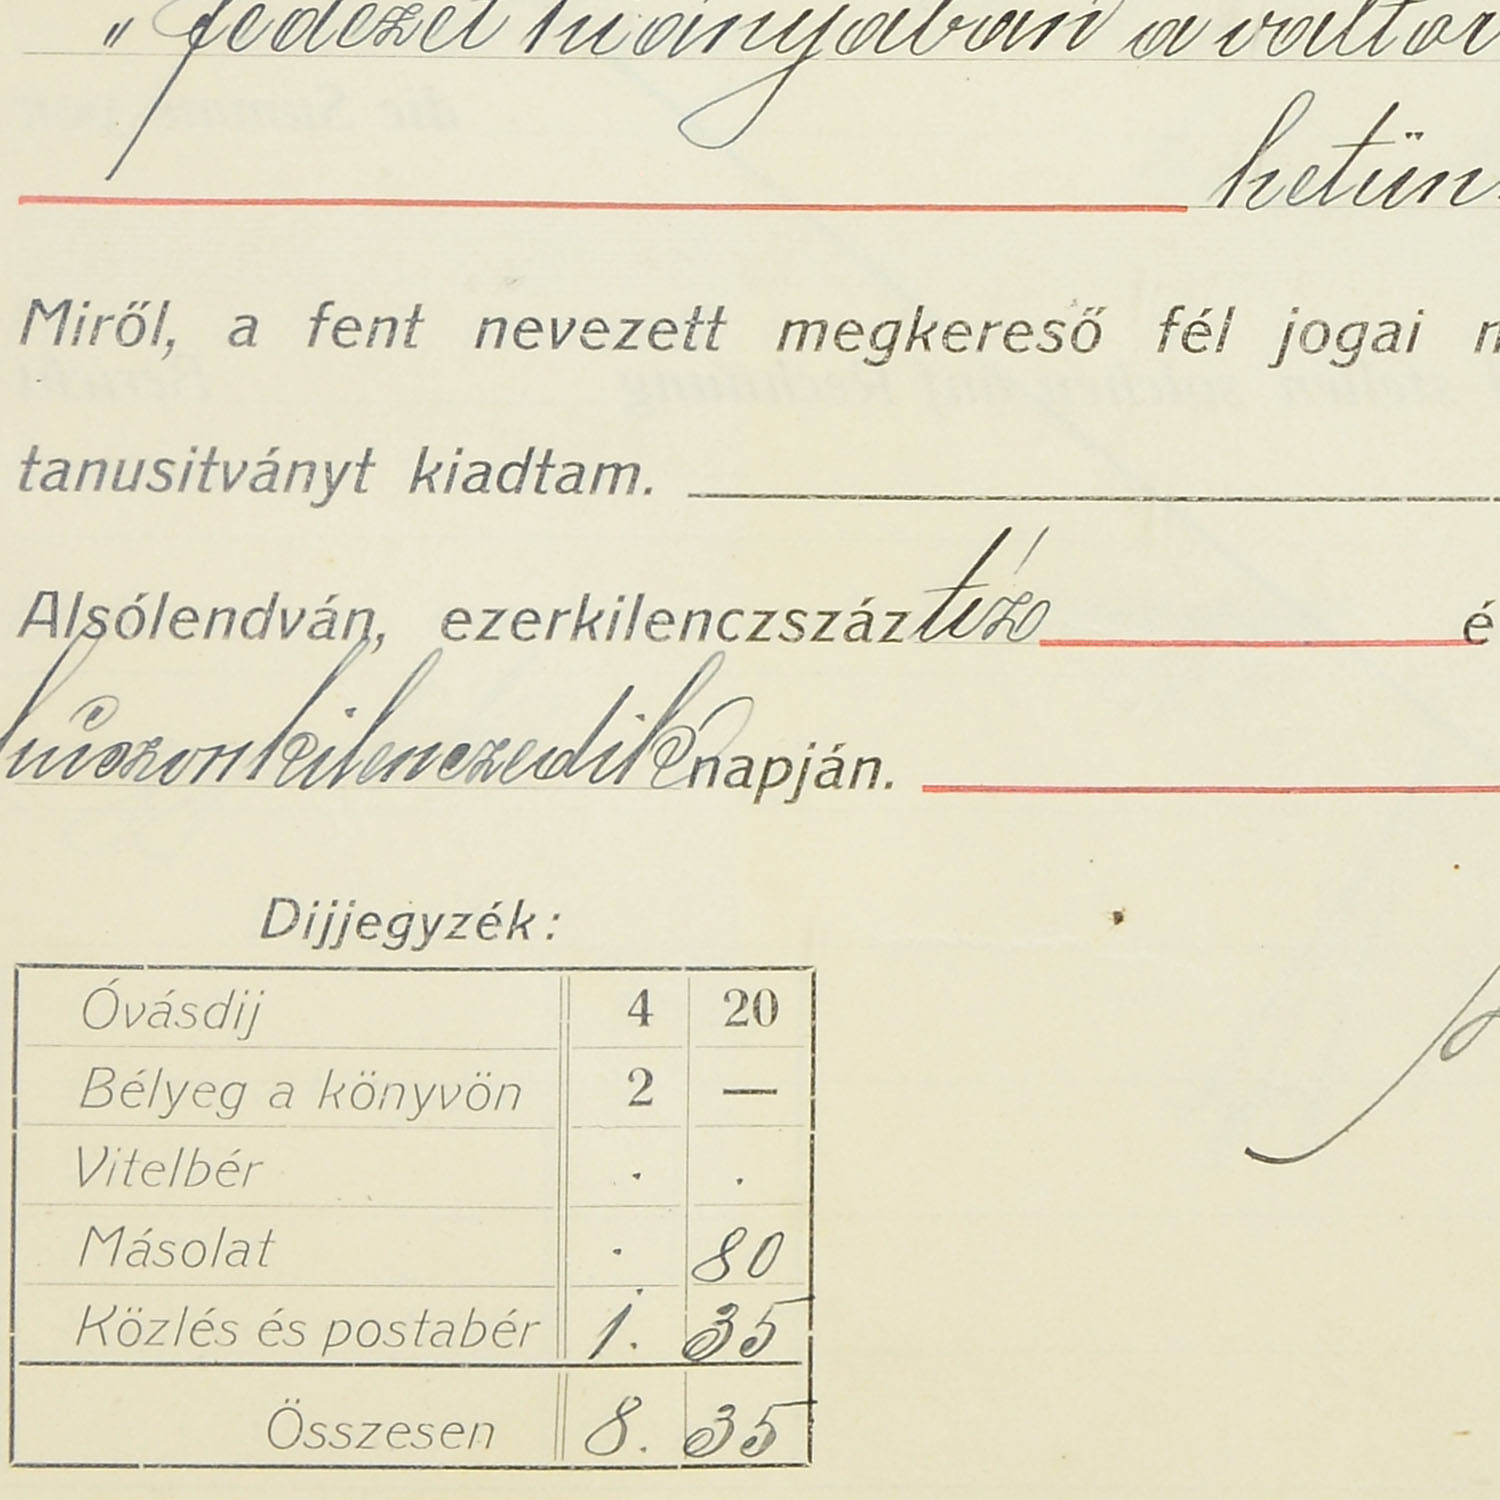 „ fedezet hiányában a váltor
hetün
Miről, a fent nevezett megkereső fél jogai
tanusitványt kiadtam.
Alsólendván, ezerkilenczszáztíz é
húszonkilenczedik napján.
Dijjegyzék:
Óvásdij 4 20
Bélyeg a könyvön 2 —
Vitelbér . .
Másolat . 80
Közlés és postabér 1. 35
Összesen 8. 35